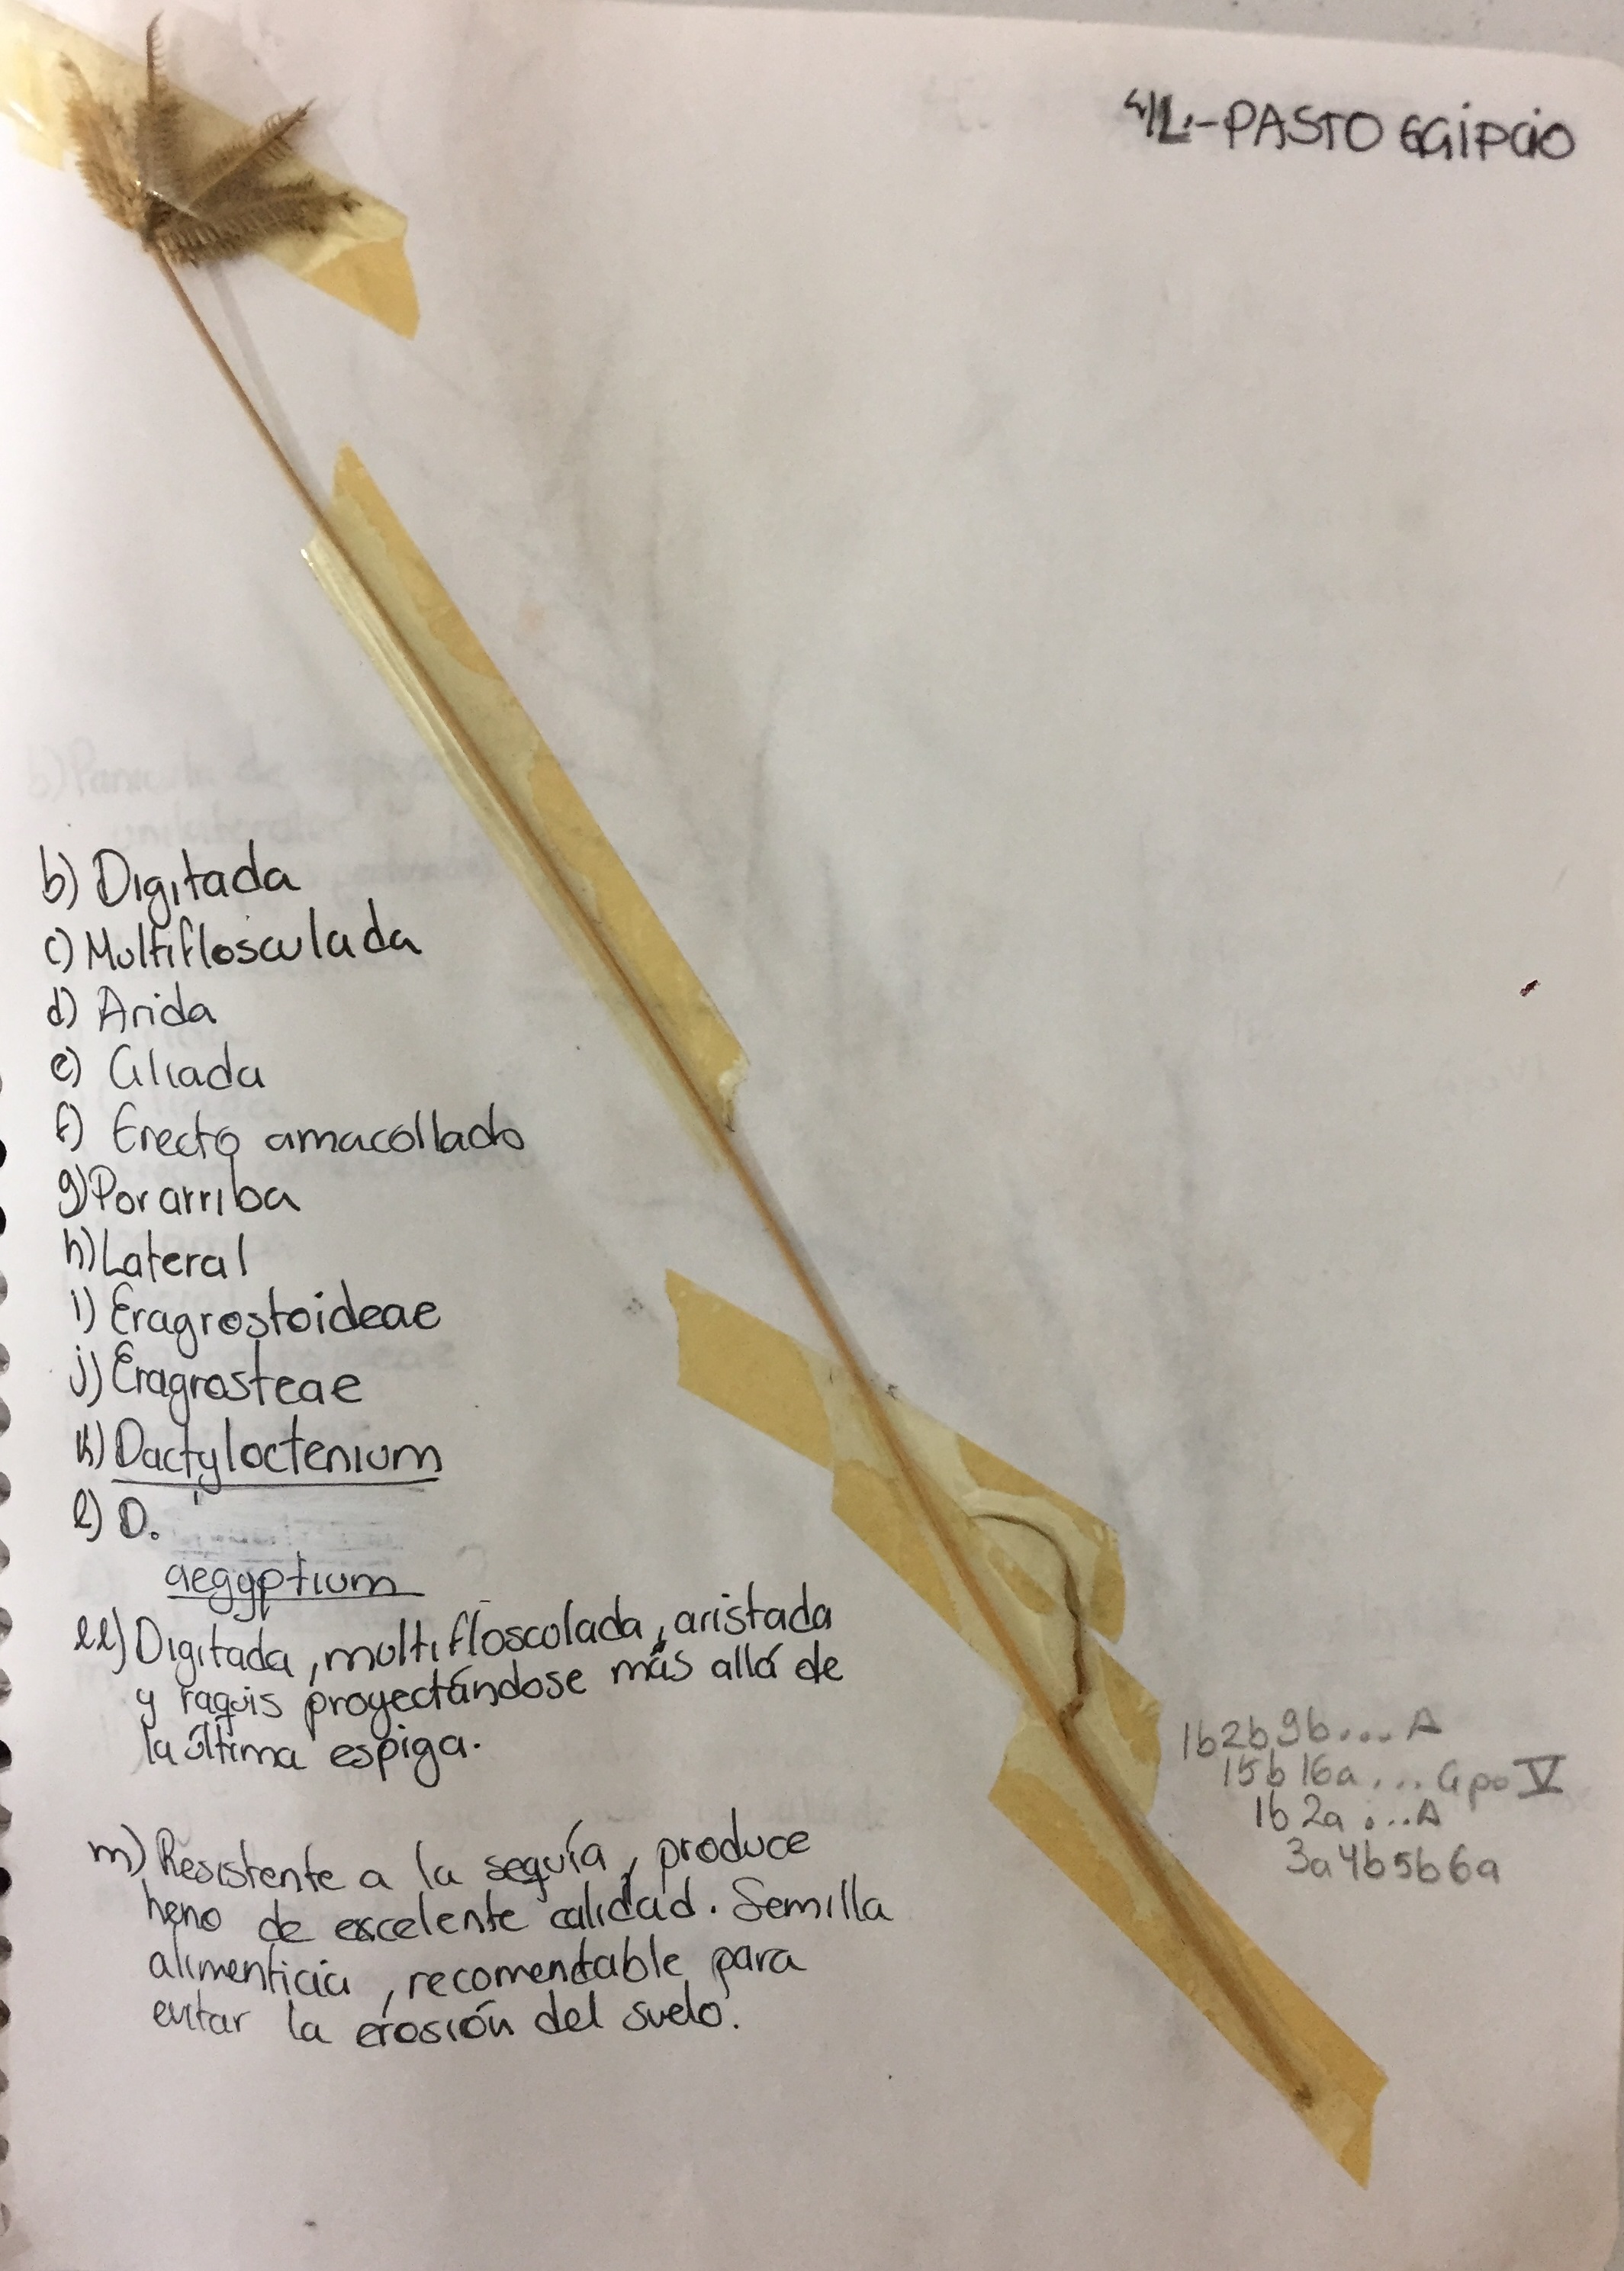 PASTO EGIPCIO
b) Digitada
c) Multiflosculada
d) Arida
e) Ciliada
f) Erecto amacollado
g) Por arriba
h) Lateral
i) Eragrostoideae
j) Eragrosteae
k) Dactyloctenium
l) D.
aegyptium
ll) Digitada, multifloscolada, aristada
y raquis proyectándose más allá de
la última espiga.
m) Resistente a la sequía, produce
heno de excelente calidad. Semilla
alimenticia, recomendable para
evitar la erosión del suelo.
1b 2b 9b.... A
15b 16a ... Gpo V
1b 2a ... A
3a 4b 5b 6a